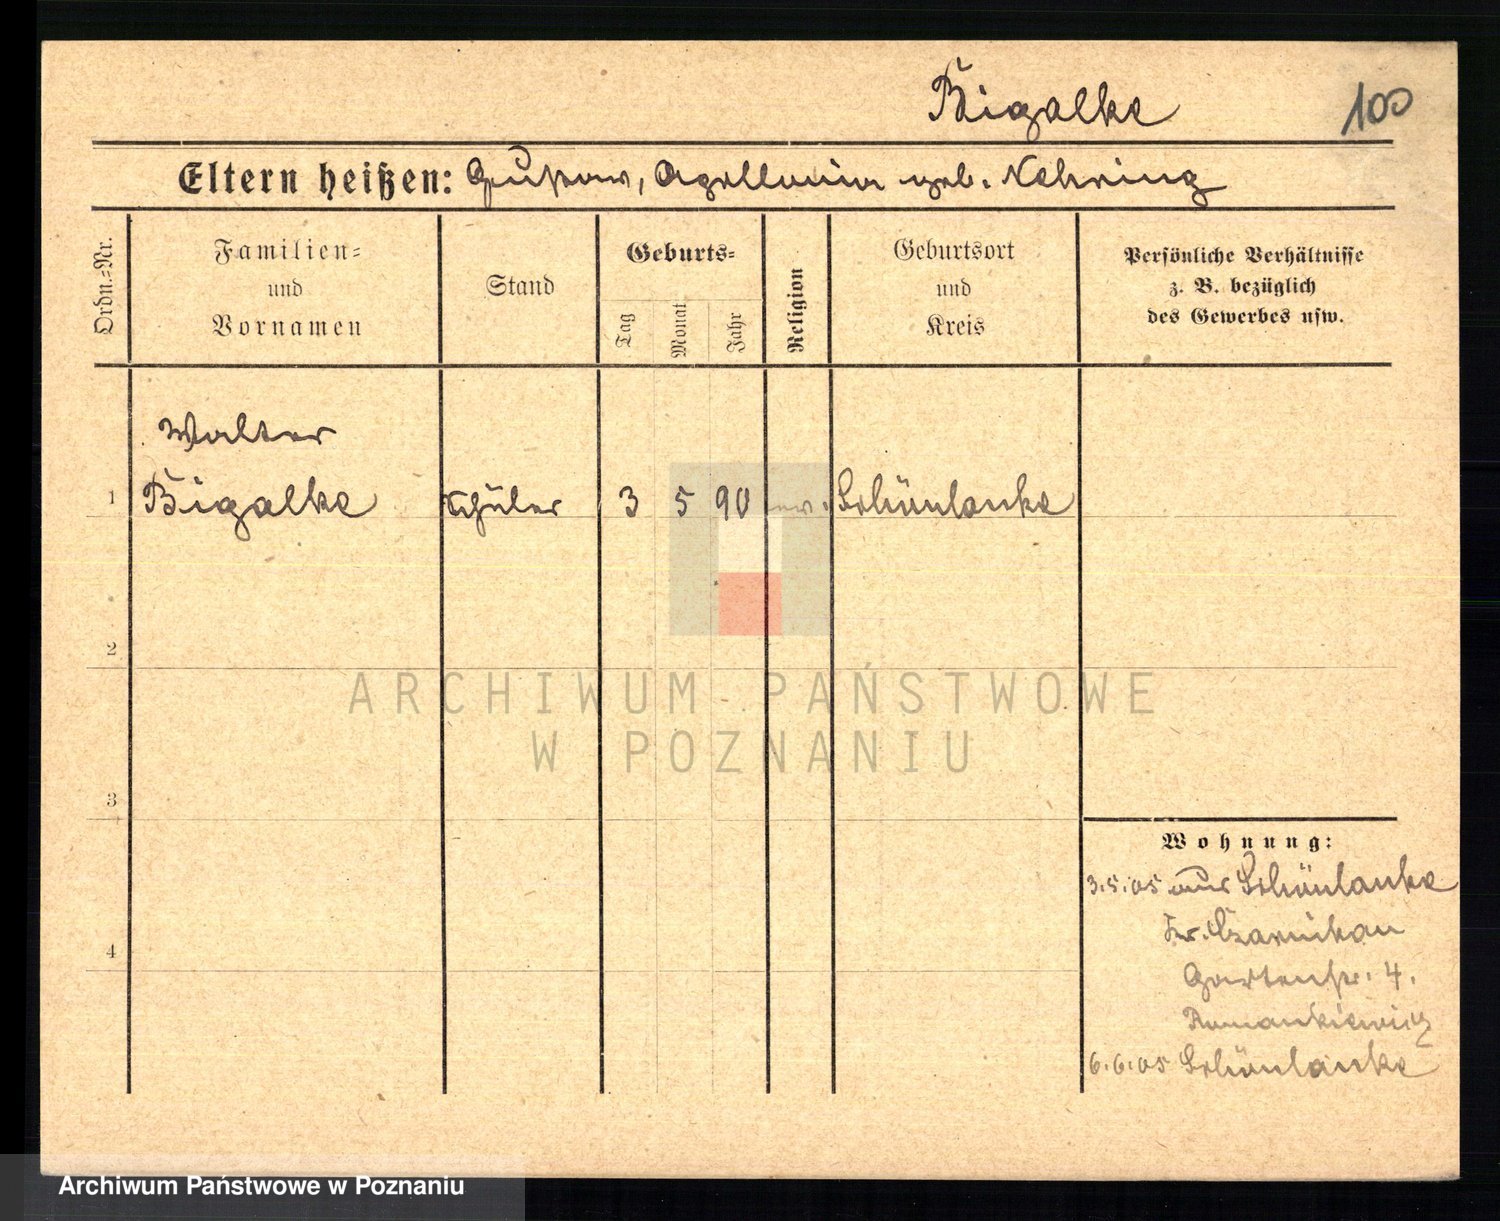 Bigalke
100
Eltern heißen: Gustav, Apollonia geb. Nehring
Ordn.=Nr.
Familien=
und
Vornamen
Stand
Geburts=
Tag
Monat
Jahr
Religion
Geburtsort
und
Kreis
Persönliche Verhältnisse
z. B. bezüglich
des Gewerbes usw.
Walter
1 Bigalke Schüler 3 5 90 ev. Schönlanke
2
3
4
Wohnung:
3.5.05 aus Schönlanke
Kr. Czarnikau
Gartenstr. 4.
Romankiewicz
6.6.05 Schönlanke
ARCHIWUM PAŃSTWOWE
W POZNANIU
Archiwum Państwowe w Poznaniu